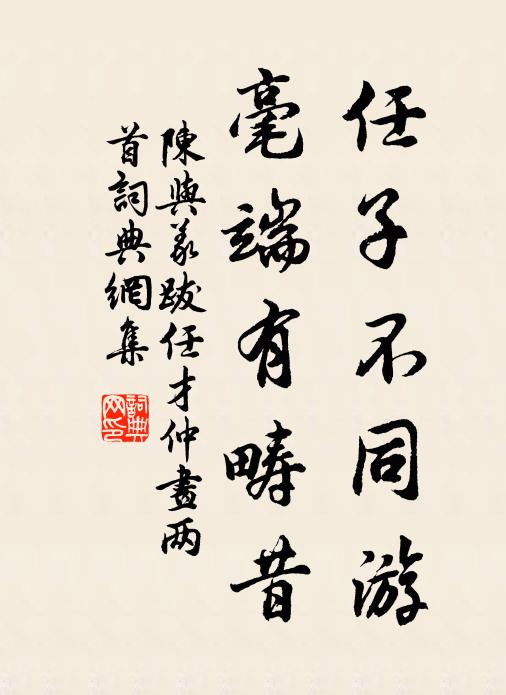 任子不同游
毫端有畴昔
陳與義跋任才仲畫两
首詞典網集
詞典
网印